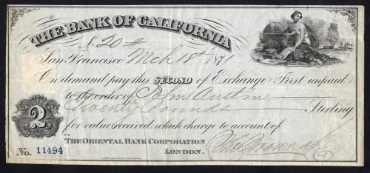 THE BANK OF CALIFORNIA
£20
San Francisco Mch 18th 1871
On demand pay this SECOND of Exchange First unpaid
to the order of John Austin
Twenty Pounds Sterling
2
for value received which charge to account of
THE ORIENTAL BANK CORPORATION
No. 11494
LONDON.